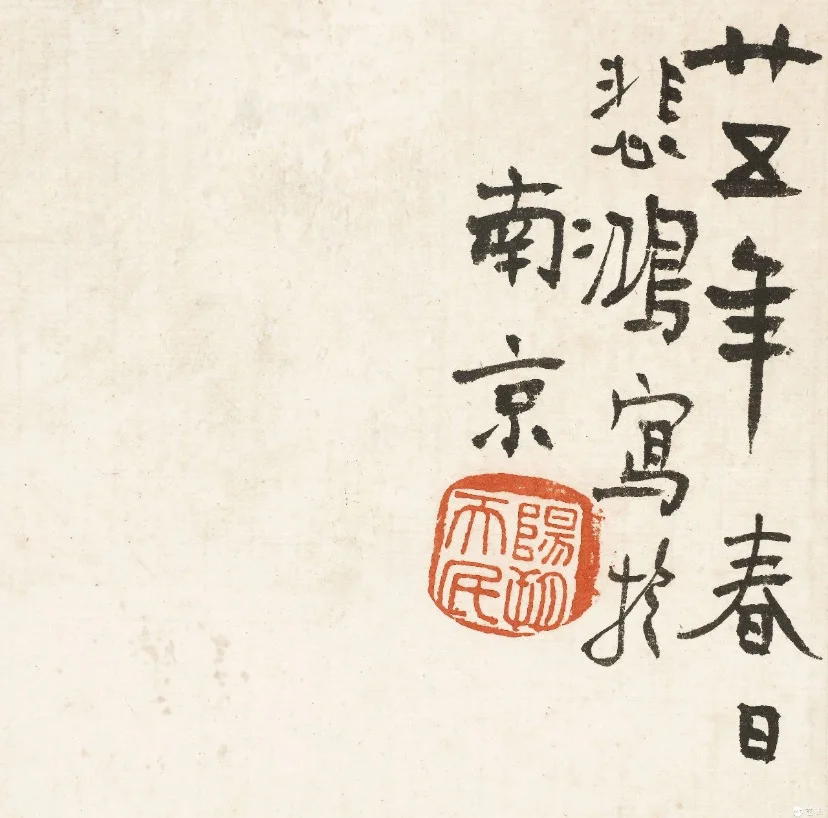 廿五年春日
悲鴻寫於
南京
陽朔
天民